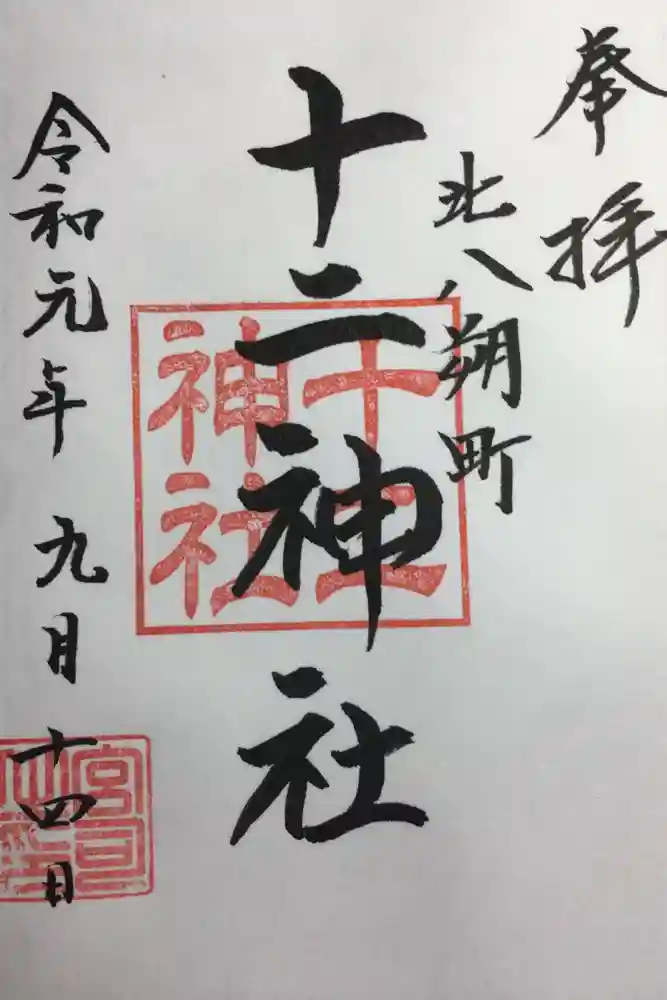 奉拝
北八朔町
十二神社
十二神社
令和元年九月十四日
宮司